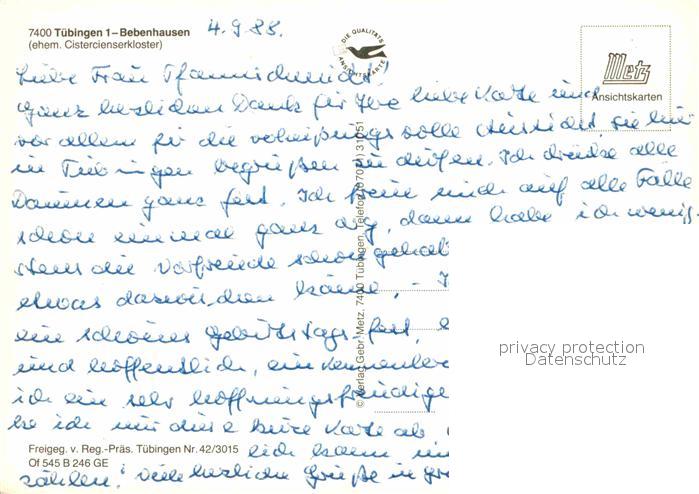 7400 Tübingen 1 – Bebenhausen
(ehem. Cistercienserkloster)
4.9.88.
DIE QUALITÄTS
ANSICHTSKARTE
Metz
Ansichtskarten
Liebe Frau Pfannschmidt!
Ganz herzlichen Dank für Ihre liebe Karte und
vor allem für die verheißungsvolle Aussicht, sie hier
in Tübingen begrüßen zu dürfen. Ich drücke alle
Daumen ganz fest. Ich freue mich auf alle Fälle
schon einmal ganz arg, dann habe ich wenig-
stens die Vorfreude schon gehabt
etwas dazwischen käme. – I
ein schönes Geburtstags-fest,
und hoffentlich, ein
ich ein sehr hoffnungsfreudige
ich mir diese kurze Karte ab
lich kann
zählen! Viele herzliche Grüße in
© Verlag Gebr. Metz, 7400 Tübingen, Telefon (07071) 31051
privacy protection
Datenschutz
Freigeg. v. Reg.-Präs. Tübingen Nr. 42/3015
Of 545 B 246 GE